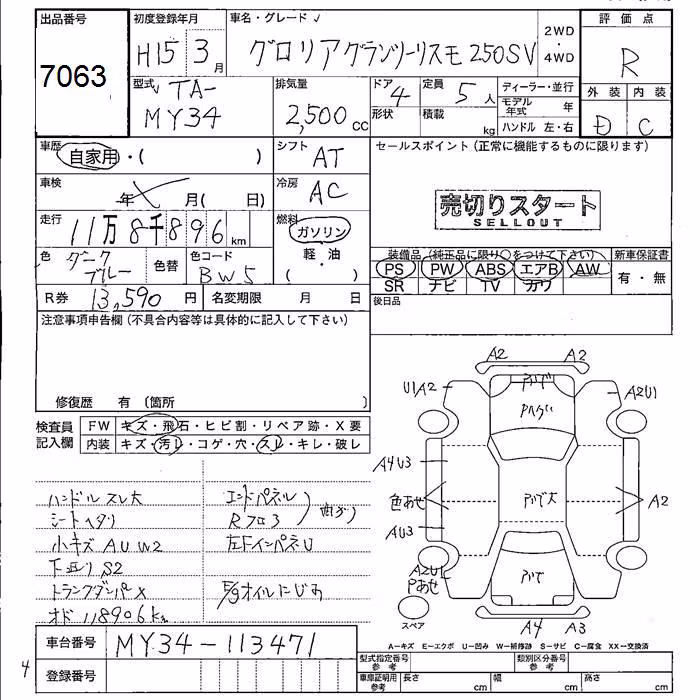 出品番号 初度登録年月 車名・グレード 2WD・4WD 評価点
7063 H15年 3月 グロリアグランツーリスモ250SV R
型式 TA-MY34 排気量 2,500cc ドア 4 定員 5人 ディーラー・並行 外装 内装
形状 積載 kg モデル年式 年 D C
ハンドル 左・右
車歴 自家用・( ) シフト AT セールスポイント(正常に機能するものに限ります)
車検 年 月( 日) 冷房 AC
売切りスタート
SELLOUT
走行 11万8千896km 燃料 ガソリン・軽・油 ( )
色 ダークブルー 色替 色コード BW5
装備品(純正品に限り○をつけて下さい) 新車保証書
PS PW ABS エアB AW 有・無
SR ナビ TV カワ
R券 13,590円 名変期限 月 日 後日品
注意事項申告欄(不具合内容等は具体的に記入して下さい)
修復歴 有(箇所 )
検査員記入欄 FW キズ・飛石・ヒビ割・リペア跡・X要
内装 キズ・汚レ・コゲ・穴・スレ・キレ・破レ
ハンドルスレ大 エンドパネル
シートヘタリ Rフロア 曲がり
小キズAUW2 左FインパネU
下回りS2
トランクダンパX E/gオイルにじみ
オド 118906km
A2 A2
U1A2 A2U1
A4U3
色あせ A2
AU3
A2U1
Pあせ
スペア
A4 A3
A=キズ E=エクボ U=凹み W=補修跡 S=サビ C=腐食 XX=交換済
車台番号 MY34-113471
登録番号
型式指定番号 参考 類別区分番号 参考
車庫証明用 参考 長さ cm 幅 cm 高さ cm
4